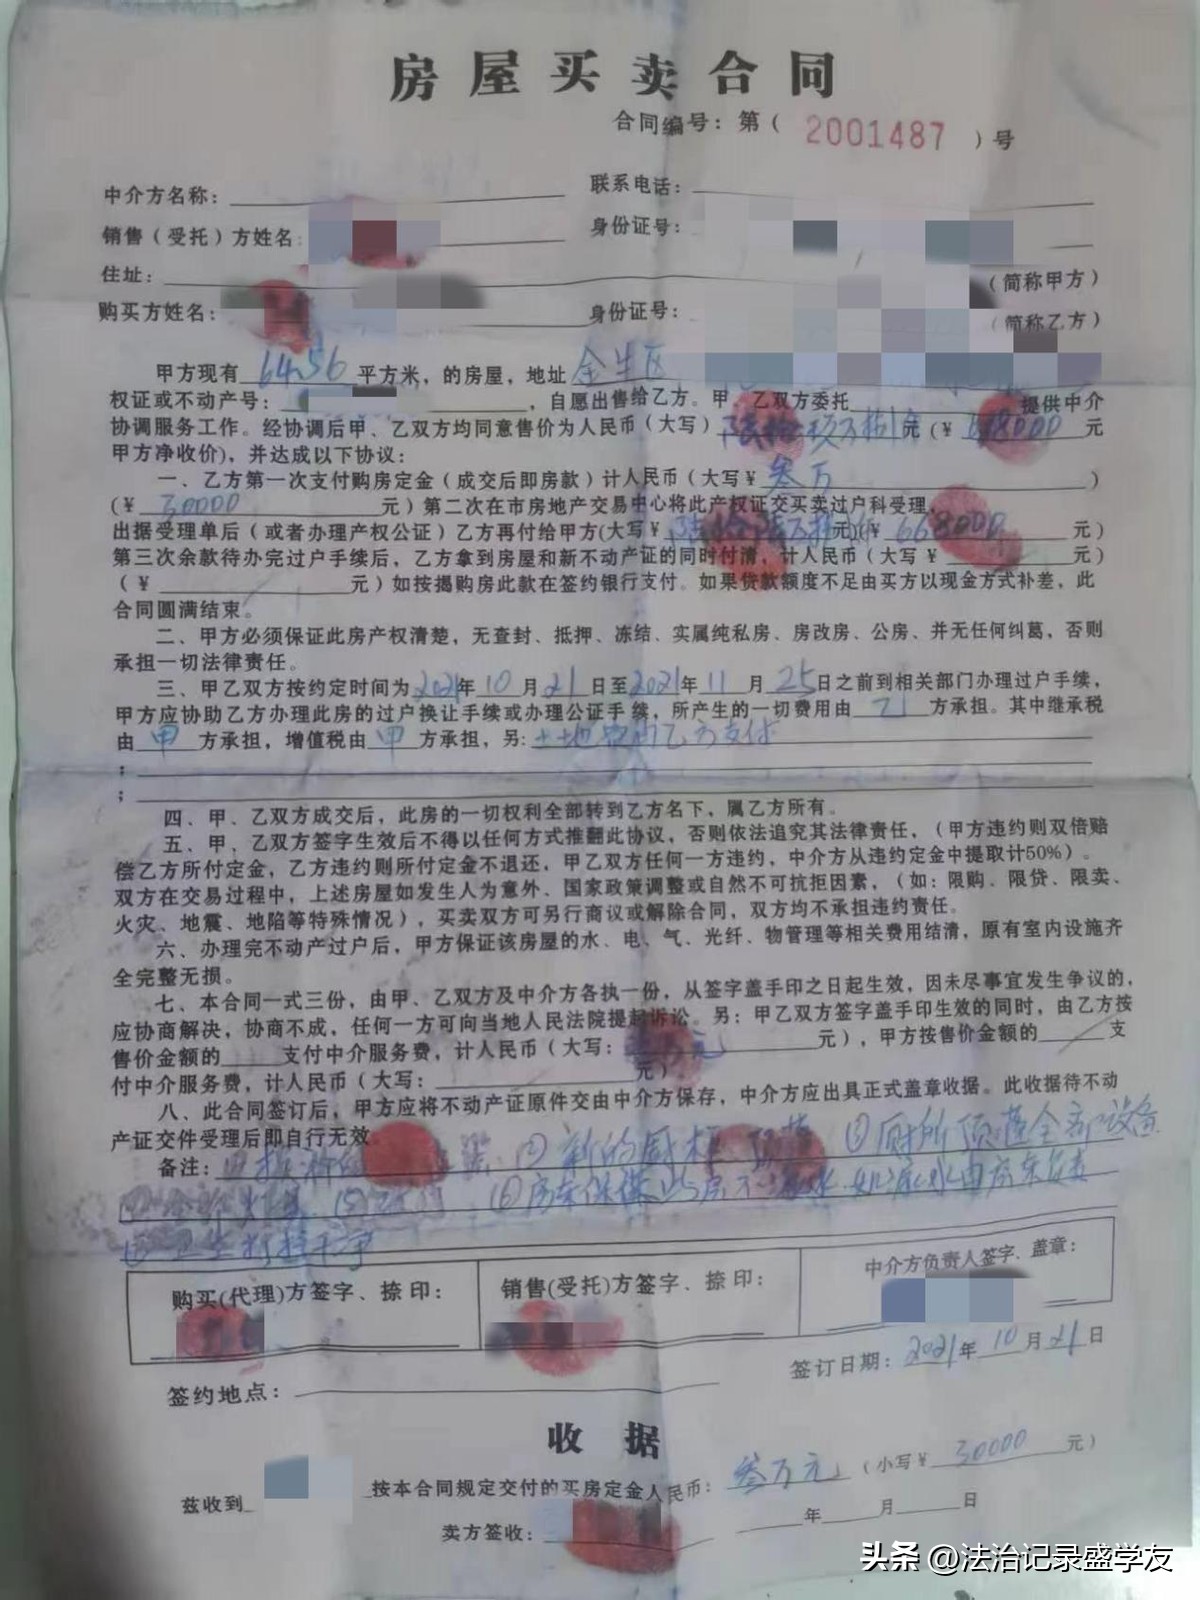 房屋买卖合同
合同编号：第（ 2001487 ）号
中介方名称：
联系电话：
销售（受托）方姓名：
身份证号：
住址：
（简称甲方）
购买方姓名：
身份证号：
（简称乙方）
甲方现有 64.56 平方米，的房屋，地址 金牛区
权证或不动产号： ，自愿出售给乙方。甲、乙双方委托 提供中介
协调服务工作。经协调后甲、乙双方均同意售价为人民币（大写） 元（¥ 元
甲方净收价），并达成以下协议：
一、乙方第一次支付购房定金（成交后即房款）计人民币（大写¥ 叁万 ）
（¥ 30000 元）第二次在市房地产交易中心将此产权证交买卖过户科受理，
出据受理单后（或者办理产权公证）乙方再付给甲方(大写¥ 元)(¥ 668000 元）
第三次余款待办完过户手续后，乙方拿到房屋和新不动产证的同时付清，计人民币（大写¥ 元）
（¥ 元）如按揭购房此款在签约银行支付。如果贷款额度不足由买方以现金方式补差，此
合同圆满结束。
二、甲方必须保证此房产权清楚，无查封、抵押、冻结、实属纯私房、房改房、公房、并无任何纠葛，否则
承担一切法律责任。
三、甲乙双方按约定时间为2021年 10 月 21 日至2021年 11 月 25日之前到相关部门办理过户手续，
甲方应协助乙方办理此房的过户换让手续或办理公证手续，所产生的一切费用由 乙 方承担。其中继承税
由 甲 方承担，增值税由 甲 方承担，另：土地 乙方支付
；
；
四、甲、乙双方成交后，此房的一切权利全部转到乙方名下，属乙方所有。
五、甲、乙双方签字生效后不得以任何方式推翻此协议，否则依法追究其法律责任，（甲方违约则双倍赔
偿乙方所付定金，乙方违约则所付定金不退还，甲乙双方任何一方违约，中介方从违约定金中提取计50%）。
双方在交易过程中，上述房屋如发生人为意外、国家政策调整或自然不可抗拒因素，（如：限购、限贷、限卖、
火灾、地震、地陷等特殊情况），买卖双方可另行商议或解除合同，双方均不承担违约责任。
六、办理完不动产过户后，甲方保证该房屋的水、电、气、光纤、物管理等相关费用结清，原有室内设施齐
全完整无损。
七、本合同一式三份，由甲、乙双方及中介方各执一份，从签字盖手印之日起生效，因未尽事宜发生争议的，
应协商解决，协商不成，任何一方可向当地人民法院提起诉讼。另：甲乙双方签字盖手印生效的同时，由乙方按
售价金额的 支付中介服务费，计人民币（大写： 元），甲方按售价金额的 支
付中介服务费，计人民币（大写： 元）。
八、此合同签订后，甲方应将不动产证原件交由中介方保存，中介方应出具正式盖章收据。此收据待不动
产证交件受理后即自行无效。
备注： ② 新的厨柜 ③ 厕所顶 全部设备
⑥ 房东保 此房不漏水，如漏水由房东负责
卫生打扫干净
购买(代理)方签字、捺印：
销售(受托)方签字、捺印：
中介方负责人签字、盖章：
签订日期： 2021 年 10 月 21 日
签约地点：
收据
兹收到 按本合同规定交付的买房定金人民币： 叁万元 （小写¥ 30000 元）
卖方签收： 年 月 日
头条 @法治记录盛学友